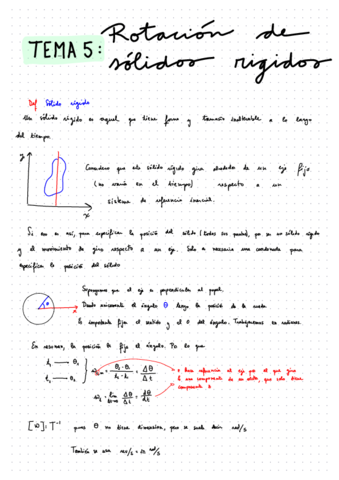 TEMA 5: Rotación de
sólidos rigidos
Def Sólido rigido
Un sólido rigido es aquel que tiene forma y tamaño inalterable a lo largo
del tiempo.
y
x
Consideremos que el sólido rigido gira alrededor de un eje fijo
(no varía en el tiempo) respecto a un
sistema de referencia inercial.
Si no es así, para especificar la posición del sólido (todos sus puntos), por ser un sólido rigido
y el movimiento de giro respecto a un eje. Solo es necesaria una coordenada para
especificar la posición del sólido
Supongamos que el eje es perpendicular al papel.
θ
x
Dando únicamente el ángulo θ tengo la posición de la rueda
Es importante fijar el sentido y el 0 del ángulo. Trabajaremos en radianes.
En resumen, la posición la fija el ángulo. Por lo que
t₁ → θ₁
t₂ → θ₂
= θ₂ - θ₁ / t₂ - t₁ = Δθ / Δt
= lim Δθ / Δt = dθ / dt
z hace referencia al eje por el que gira
Es una componente de un vector, que solo tiene
componente z
[ω] = T⁻¹ pues θ no tiene dimensiones, pero se suele decir rad/s
También se usa rev/s = 2π rad/s